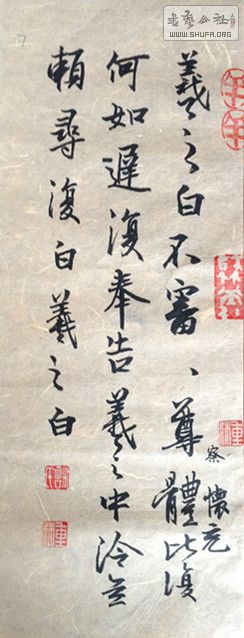 書藝公社
WWW.SHUFA.ORG
羲之白不審、尊體比復
察 懷充
何如遲復奉告羲之中冷無
賴尋復白羲之白